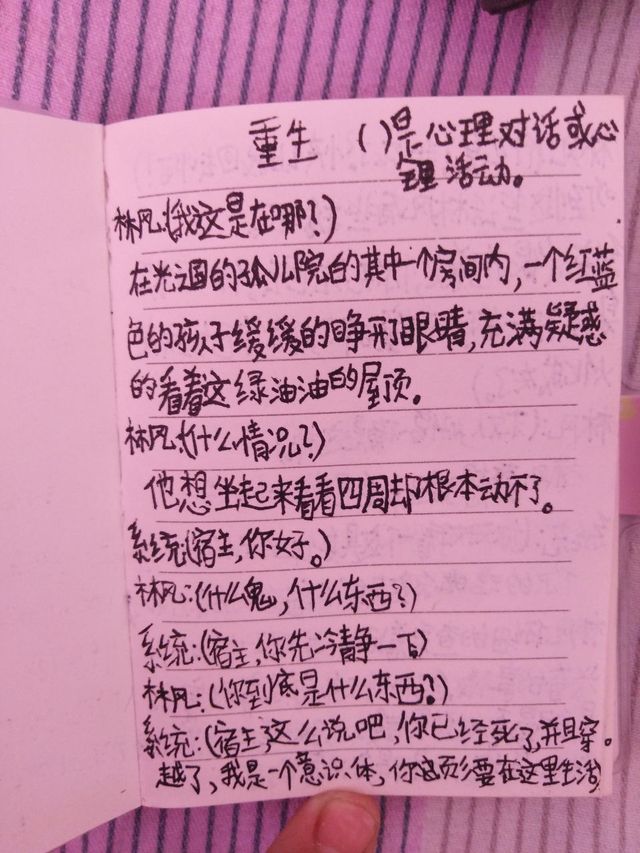 重生 ( )是心理对话或心
理活动。
林风:(我这是在哪?)
在光之国的孤儿院的其中一个房间内,一个红蓝
色的孩子缓缓的睁开了眼睛,充满疑惑
的看着这绿油油的屋顶。
林风:(什么情况?)
他想坐起来看看四周却根本动不了。
系统:(宿主,你好。)
林风:(什么鬼,什么东西?)
系统:(宿主,你先冷静一下)
林风:(你到底是什么东西?)
系统:(宿主,这么说吧,你已经死了,并且穿。
越了,我是一个意识体,你必须要在这里生活